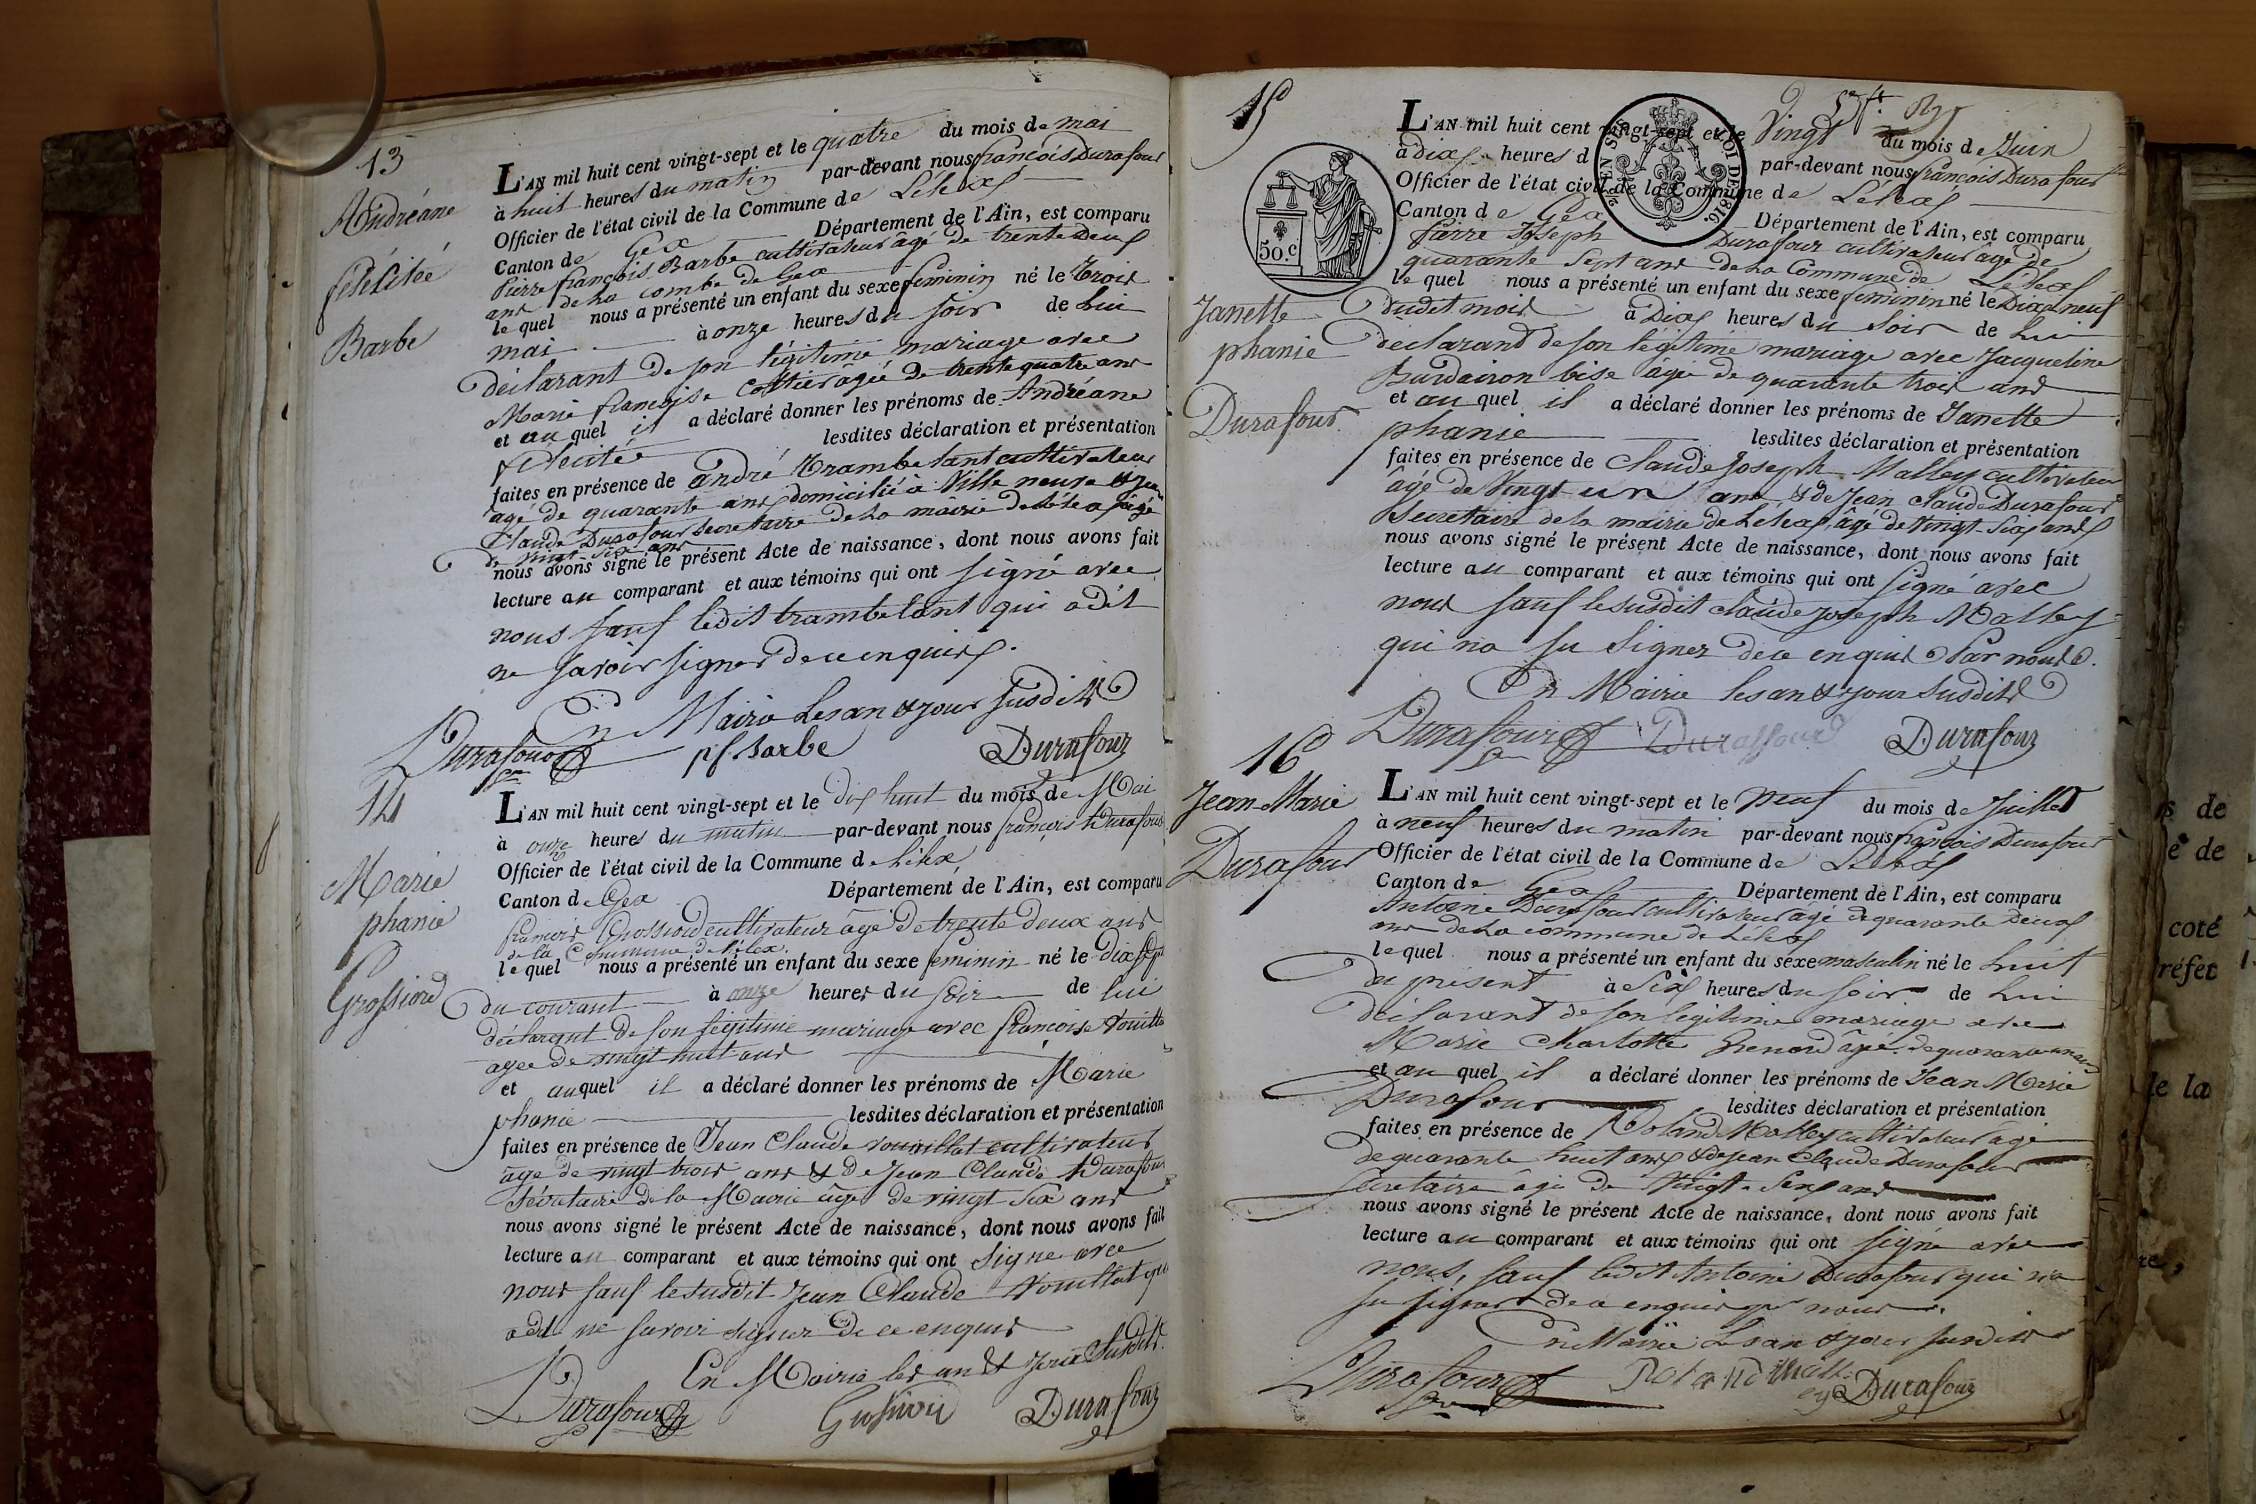 13
Andréane
félicitée
Barbe
L'AN mil huit cent vingt-sept et le quatre du mois de mai
à huit heures du matin par-devant nous françois Durafour
Officier de l'état civil de la Commune de Lélex
Canton de Gex Département de l'Ain, est comparu
Pierre françois Barbe cultivateur âgé de trente Deux
ans de La combe de Gex
le quel nous a présenté un enfant du sexe feminin né le Trois
mai à onze heures du soir de Lui
déclarant de son légitime mariage avec
Marie françoise âgée de trente quatre ans
et au quel il a déclaré donner les prénoms de Andréane
lesdites déclaration et présentation
faites en présence de andré Trambelant cultivateur
agé de quarante ans domicilié à Ville neuve & Jean
Claude Durafour secretaire de La mairie de Lélex âgé
de vingt six ans
nous avons signé le présent Acte de naissance, dont nous avons fait
lecture au comparant et aux témoins qui ont signé avec
nous sauf ledit trambelant qui a dit
ne savoir signer de ce enquis.
En Mairie Les an & jour susdits
Durafour pf Barbe Durafour
14
Marie
phanie
Grossiord
L'AN mil huit cent vingt-sept et le dix huit du mois de Mai
à onze heures du matin par-devant nous françois Durafour
Officier de l'état civil de la Commune de Lélex
Canton de Gex Département de l'Ain, est comparu
françois Grossiord cultivateur âgé de trente deux ans
de la Commune de Lélex.
le quel nous a présenté un enfant du sexe feminin né le dix sept
du courant à onze heures du soir de lui
déclarant de son légitime mariage avec françoise
agée de vingt huit ans
et auquel il a déclaré donner les prénoms de Marie
phanie lesdites déclaration et présentation
faites en présence de Jean Claude Vouillat cultivateur
âgé de vingt trois ans & de Jean Claude Durafour
Sécretaire de la Mairie âgé de vingt six ans
nous avons signé le présent Acte de naissance, dont nous avons fait
lecture au comparant et aux témoins qui ont signé avec
nous sauf le susdit Jean Claude Vouillat qui
a dit ne savoir signer de ce enquis
En Mairie les an & jour susdits.
Durafour Grossiord Durafour
15
Janette
phanie
Durafour
50.c
L'AN mil huit cent vingt-sept et le Vingt du mois de Juin
à Dix heures d par-devant nous françois Durafour
Officier de l'état civil de la Commune de Lélex
Canton de Gex Département de l'Ain, est comparu
pierre Joseph Durafour cultivateur âgé de
quarante Sept ans de La Commune de Lélex
le quel nous a présenté un enfant du sexe feminin né le Dix neuf
dudit mois à Dix heures du Soir de Lui
déclarand de son légitime mariage avec Jacqueline
âgée de quarante trois ans
et au quel il a déclaré donner les prénoms de Janette
phanie lesdites déclaration et présentation
faites en présence de Claude Joseph Malley cultivateur
âgé de Vingt un ans & de Jean Claude Durafour
Secretaire de la mairie de Lélex âgé de Vingt Six ans
nous avons signé le présent Acte de naissance, dont nous avons fait
lecture au comparant et aux témoins qui ont signé avec
nous sauf le susdit Claude Joseph Malley
qui na su signer de ce enquis Par nous.
En Mairie les an & jour susdits
Durafour Duraffourd Durafour
16
Jean-Marie
Durafour
L'AN mil huit cent vingt-sept et le Neuf du mois de Juillet
à neuf heures du matin par-devant nous françois Durafour
Officier de l'état civil de la Commune de Lélex
Canton de Gex Département de l'Ain, est comparu
Antoine Durafour cultivateur âgé de quarante deux
ans de La commune de Lélex
le quel nous a présenté un enfant du sexe masculin né le huit
du présent à Six heures du soir de Lui
déclarant de son légitime mariage avec
Marie Charlotte Grenard âgée de quarante un ans
et au quel il a déclaré donner les prénoms de Jean Marie
Durafour lesdites déclaration et présentation
faites en présence de Roland Malley cultivateur âgé
de quarante huit ans & de Jean Claude Durafour
secretaire âgé de Vingt Six ans
nous avons signé le présent Acte de naissance, dont nous avons fait
lecture au comparant et aux témoins qui ont signé avec
nous, sauf ledit Antoine Durafour qui n'a
su signer de ce enquis par nous.
En Mairie Les an & jour susdits
Durafour Roland Malley Durafour
s de
e de
coté
réfet
de la
re,